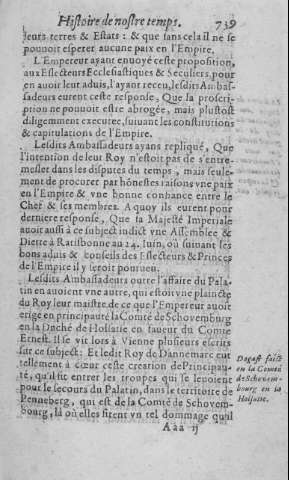 Histoire de nostre temps. 739
leurs terres & Estats : & que sans cela il ne se
pouuoit esperer aucune paix en l'Empire.
L'Empereur ayant enuoyé ceste proposition,
aux Eslecteurs Ecclesiastiques & Seculiers, pour
en auoir leur aduis, l'ayant receu, lesdits Ambas-
sadeurs eurent ceste response, Que la proscri-
ption ne pouuoit estre abrogée, mais plustost
diligemment executee, suiuant les constitutions
& capitulations de l'Empire.
Lesdits Ambassadeurs ayans repliqué, Que
l'intention de leur Roy n'estoit pas de s'entre-
mesler dans les disputes du temps, mais seule-
ment de procurer par hônestes raisons vne paix
en l'Empire & vne bonne confiance entre le
Chef & ses membres. A quoy ils eurent pour
derniere response, Que sa Majesté Imperiale
auoit aussi à ce subject indict vne Assemblée &
Diette à Ratisbonne au 24. Iuin, où suiuant les
bons aduis & conseils des Eslecteurs & Princes
de l'Empire il y seroit pourueu.
Lesdits Ambassadeurs outre l'affaire du Pala-
tin en auoient vne autre, qui estoit vne plaincte
du Roy leur maistre de ce que l'Empereur auoit
erigé en principauté la Comté de Schovemburg
en la Duché de Holsatie en faueur du Comte
Ernest. Il se vit lors à Vienne plusieurs escrits
sur ce subject: Et ledit Roy de Dannemarc eut
tellement à cœur ceste creation de Principau-
té, qu'il fit entrer les troupes qui se leuoient
pour le secours du Palatin, dans le territoire de
Penneberg, qui est de la Comté de Schovem-
bourg, là où elles firent vn tel dommage qu'il
Degast faict
en la Comté
de Schovem-
bourg en la
Holsatie.
Aaa ij